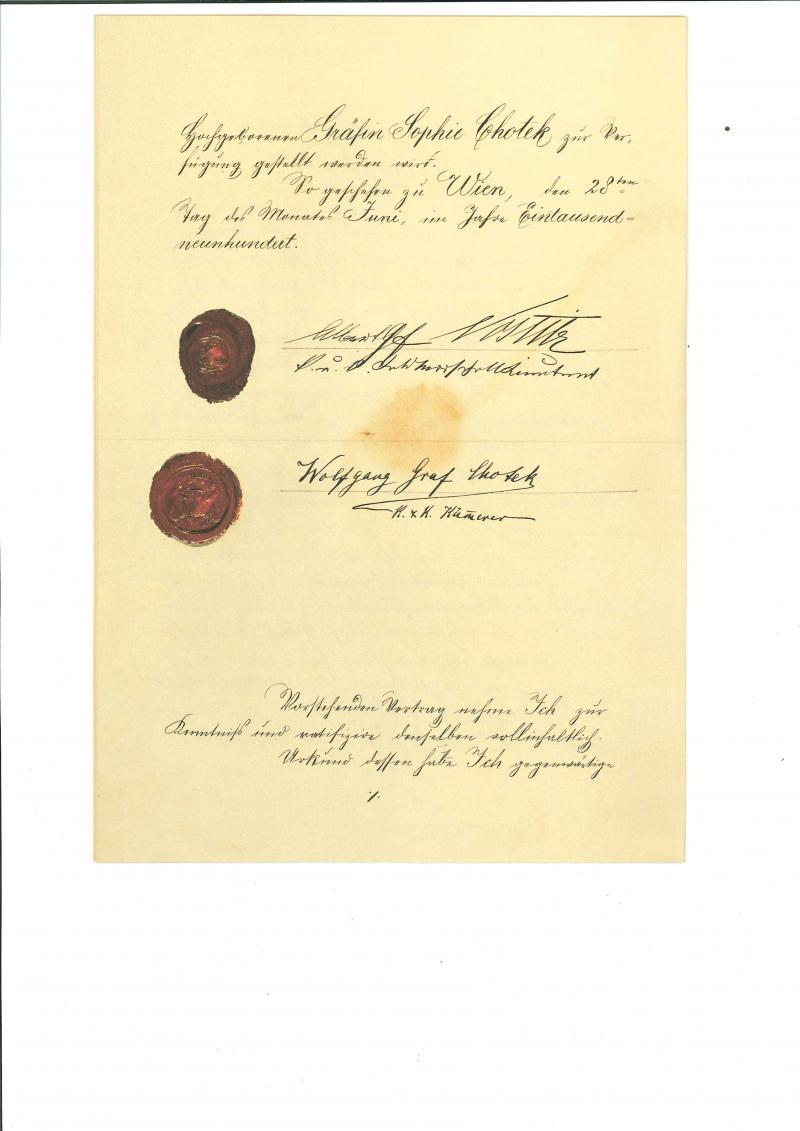 Hochgeborenen Gräfin Sophie Chotek zur Ver-
fügung gestellt werden wird.
So geschehen zu Wien, den 28ten
Tag des Monates Juni, im Jahre Eintausend-
neunhundert.
Albert Gf Nostitz
k. u. k. Feldmarschallieutenant
Wolfgang Graf Chotek
K. & K. Kämerer
Vorstehenden Vertrag nehme Ich zur
Kenntniß und ratifizire denselben vollinhaltlich.
Urkund dessen habe Ich gegenwärtige
./.